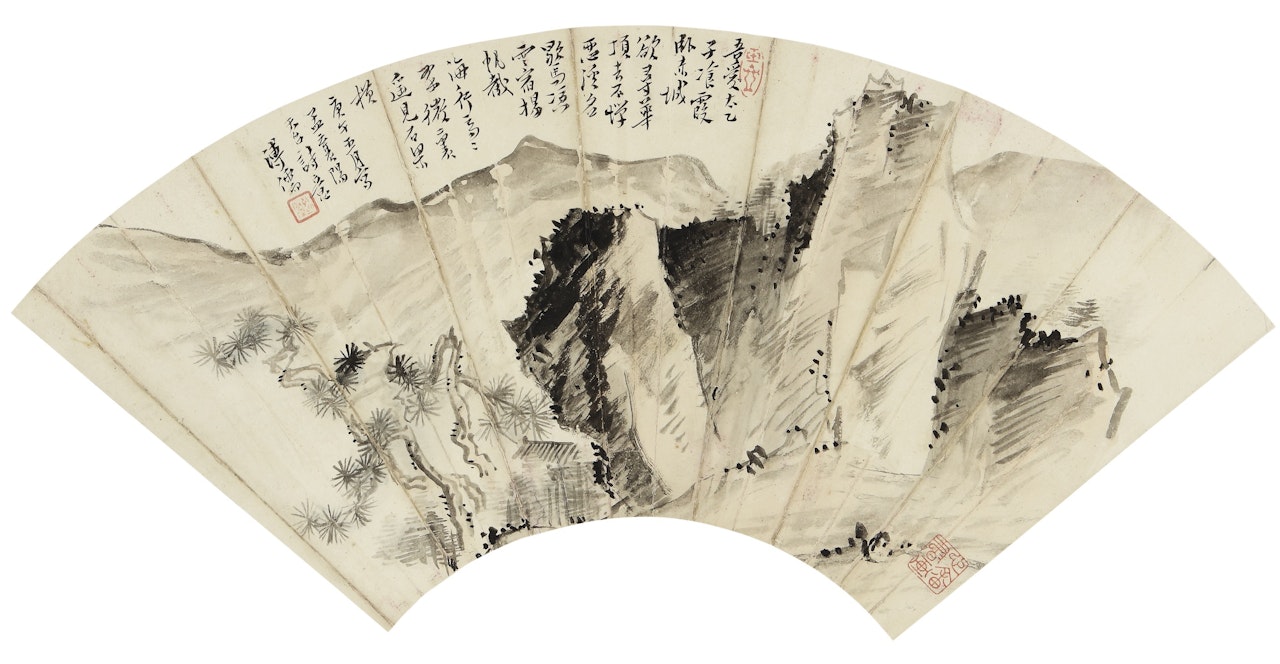 吾愛太乙
子飡霞
臥赤城
欲尋華
頂去不憚
惡溪名
歇馬憑
雲宿揚
帆截
海行高〻
翠微裏
遙見石梁
横
庚午五月寫
孟襄陽
天台詩意
溥濡